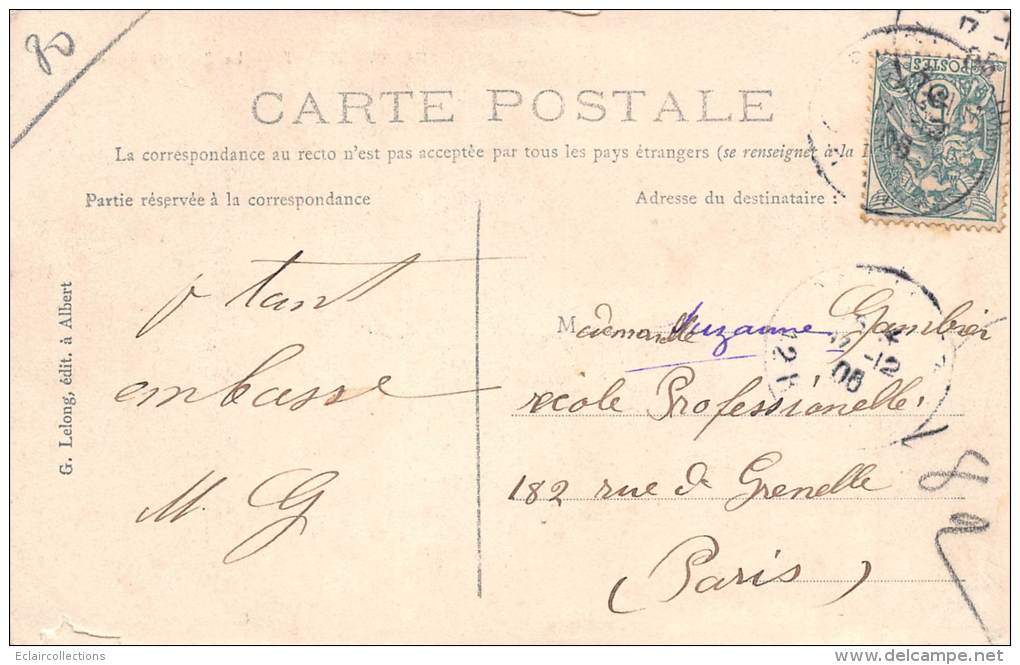 80
CARTE POSTALE
La correspondance au recto n'est pas acceptée par tous les pays étrangers (se renseigner à la
Partie réservée à la correspondance
Adresse du destinataire :
G. Lelong, édit. à Albert
tant
embrasse
M. G
Mademoiselle Suzanne Gambier
école Professionelle.
182 rue de Grenelle
(Paris)
POSTES
12
05
Eclaircollections
delcampe.net